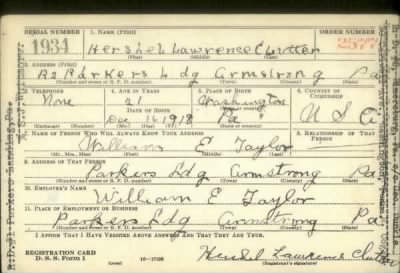 SERIAL NUMBER 1. NAME (Print) ORDER NUMBER
1934 Hershel Lawrence Clutter 2577
(First) (Middle) (Last)
2. ADDRESS (Print)
R2 Parkers Ldg Armstrong Pa
(Number and street or R. F. D. number) (Town) (County) (State)
3. TELEPHONE 4. AGE IN YEARS 5. PLACE OF BIRTH 6. COUNTRY OF CITIZENSHIP
None 21 Washington
DATE OF BIRTH (Town or county)
Dec 16 1918 Pa U S A
(Exchange) (Number) (Mo.) (Day) (Yr.) (State or country)
7. NAME OF PERSON WHO WILL ALWAYS KNOW YOUR ADDRESS 8. RELATIONSHIP OF THAT PERSON
William E Taylor
(Mr., Mrs., Miss) (First) (Middle) (Last)
9. ADDRESS OF THAT PERSON
Parkers Ldg Armstrong Pa
(Number and street or R. F. D. number) (Town) (County) (State)
10. EMPLOYER'S NAME
William E Taylor
11. PLACE OF EMPLOYMENT OR BUSINESS
Parkers Ldg Armstrong Pa
(Number and street or R. F. D. number) (Town) (County) (State)
I AFFIRM THAT I HAVE VERIFIED ABOVE ANSWERS AND THAT THEY ARE TRUE.
REGISTRATION CARD
D. S. S. Form 1 (over) 16—17105 Hershel Lawrence Clutter
(Registrant's signature)